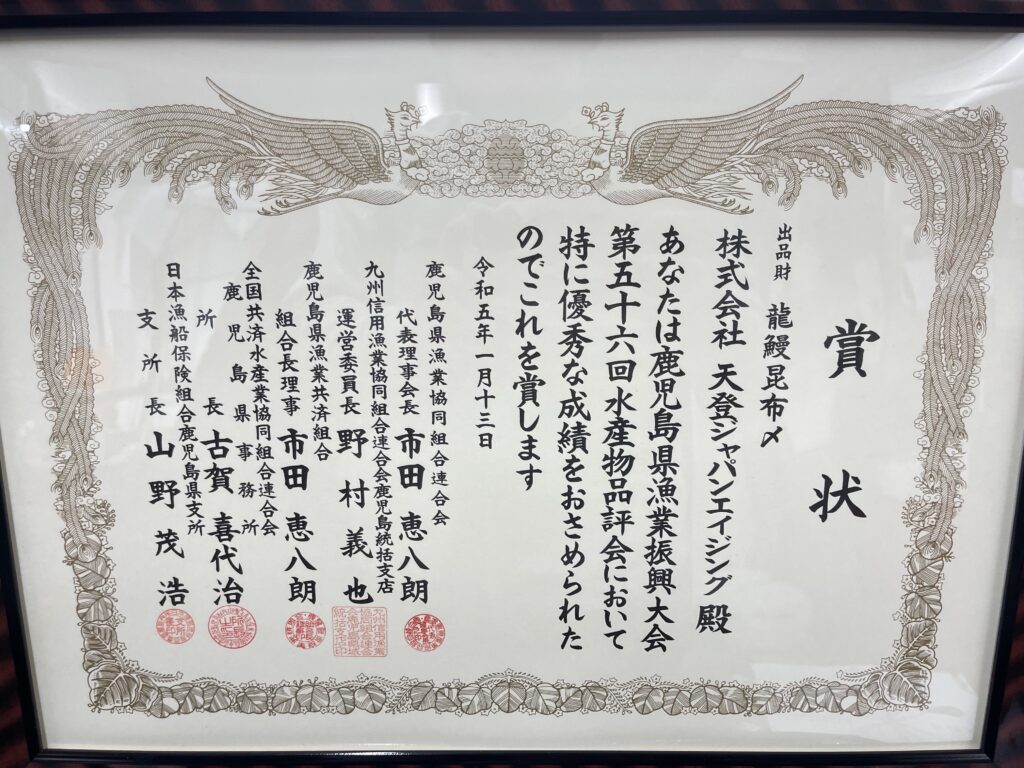 賞状
出品財 龍鰻昆布〆
株式会社 天登ジャパンエイジング 殿
あなたは鹿児島県漁業振興大会
第五十六回水産物品評会において
特に優秀な成績をおさめられた
のでこれを賞します
令和五年一月十三日
鹿児島県漁業協同組合連合会
代表理事会長 市田恵八朗
九州信用漁業協同組合連合会鹿児島統括支店
運営委員長 野村義也
鹿児島県漁業共済組合
組合長理事 市田恵八朗
全国共済水産業協同組合連合会
鹿児島県事務所
所長 古賀喜代治
日本漁船保険組合鹿児島県支所
支所長 山野茂浩